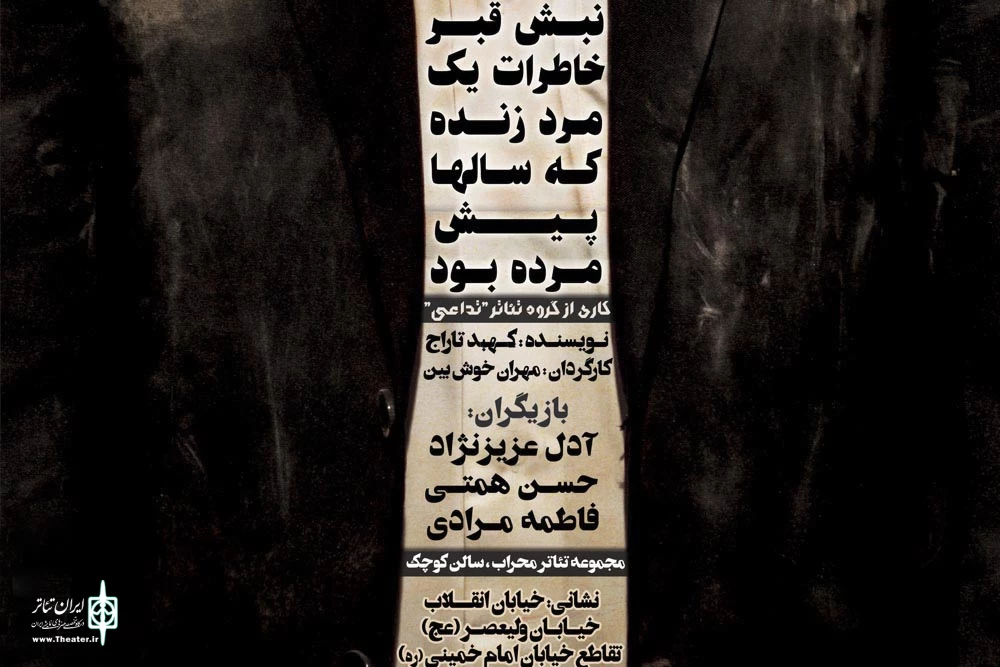 نبش قبر
خاطرات یک
مرد زنده
که سالها
پیش
مرده بود
کاری از گروه تئاتر "تداعی"
نویسنده: کهبد تاراج
کارگردان: مهران خوش بین
بازیگران:
آدل عزیزنژاد
حسن همتی
فاطمه مرادی
مجموعه تئاتر محراب، سالن کوچک
نشانی: خیابان انقلاب
خیابان ولیعصر (عج)
تقاطع خیابان امام خمینی (ره)
ایران تئاتر
www.Theater.ir